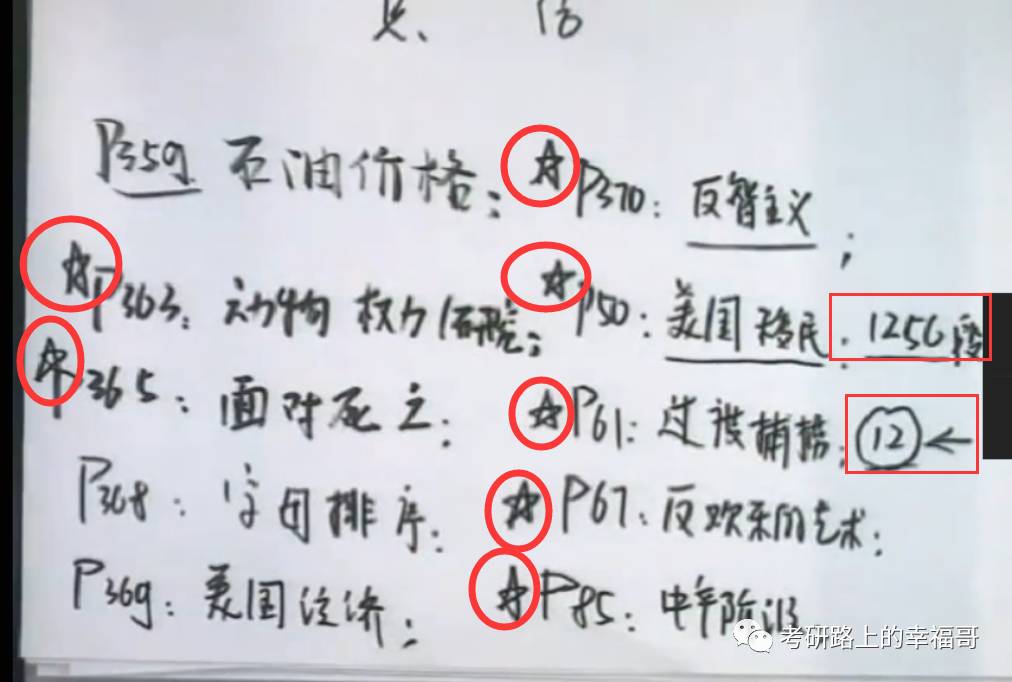 P359 石油价格;
☆P363: 动物权力研究;
☆P365: 面对死亡;
P368: 字母排序;
P369: 美国经济;
☆P370: 反智主义;
☆P50: 美国移民: 1256段
☆P61: 过渡捕捞: 12←
☆P67: 反欢乐的艺术;
☆P85: 中年阶级
考研路上的幸福哥